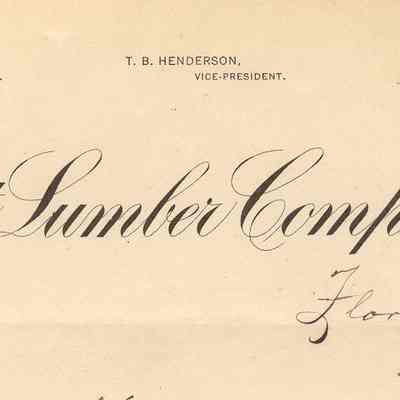 T. B. HENDERSON,
VICE-PRESIDENT.
Lumber Comp
Flor